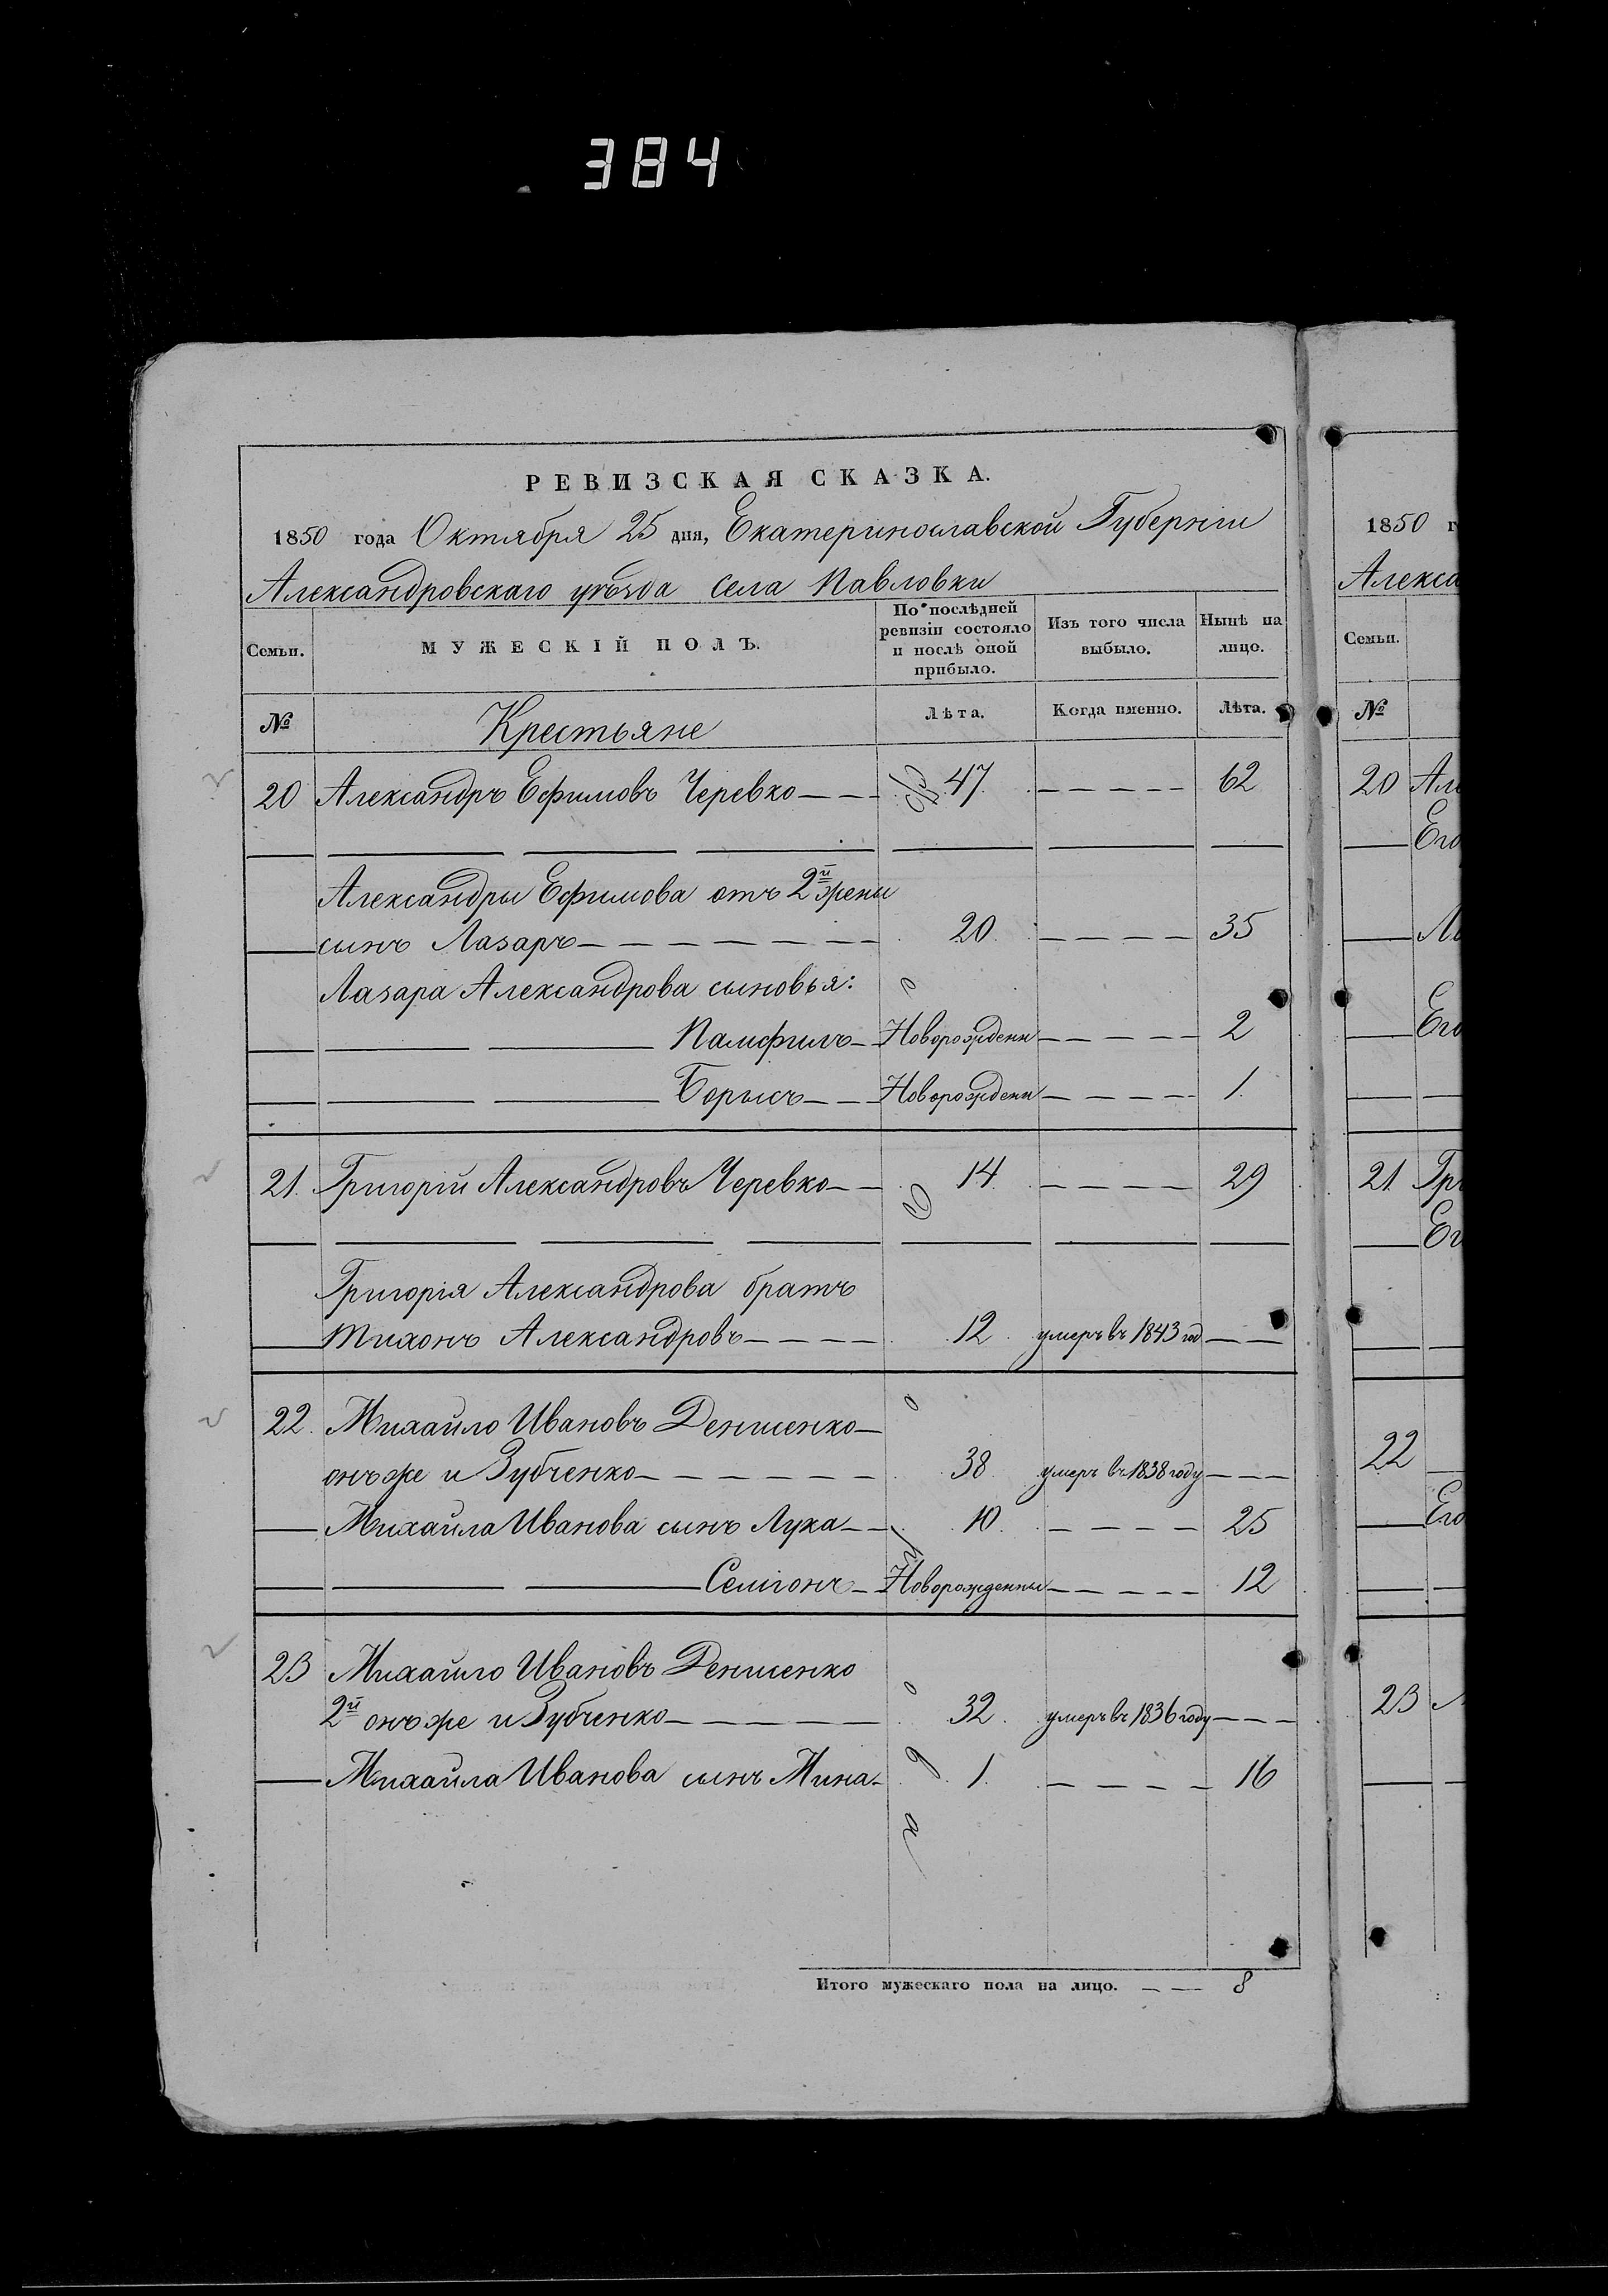 384
РЕВИЗСКАЯ СКАЗКА.
1850 года Октября 25 дня, Екатеринославской Губерніи
Александровскаго уѣзда села Павловки
Семьи. МУЖЕСКІЙ ПОЛЪ. По послѣдней ревизіи состояло и послѣ оной прибыло. Изъ того числа выбыло. Нынѣ на лицо.
№ Крестьяне Лѣта. Когда именно. Лѣта.
20 Александръ Ефимовъ Черевко 47 62
Александры Ефимова отъ 2й жены
сынъ Лазаръ 20 35
Лазара Александрова сыновья:
Памфилъ Новорожденн 2
Борысъ Новорожденн 1.
21. Григорій Александровъ Черевко 14 29
Григорія Александрова братъ
Тихонъ Александровъ 12 умеръ въ 1843 год
22. Михайло Ивановъ Денисенко
онъ же и Зубченко 38 умеръ въ 1838 году
Михайла Иванова сынъ Лука 10. 25
Семіонъ Новорожденны 12
23 Михайло Ивановъ Денисенко
2й онъ же и Зубченко 32 умеръ въ 1836 году
Михайла Иванова сынъ Мина 1. 16
Итого мужескаго пола на лицо. 8
1850 г
Алекса
Семьи.
№
20 Але
Его
Ла
Его
21 Гри
Ег
22
Его
23 М